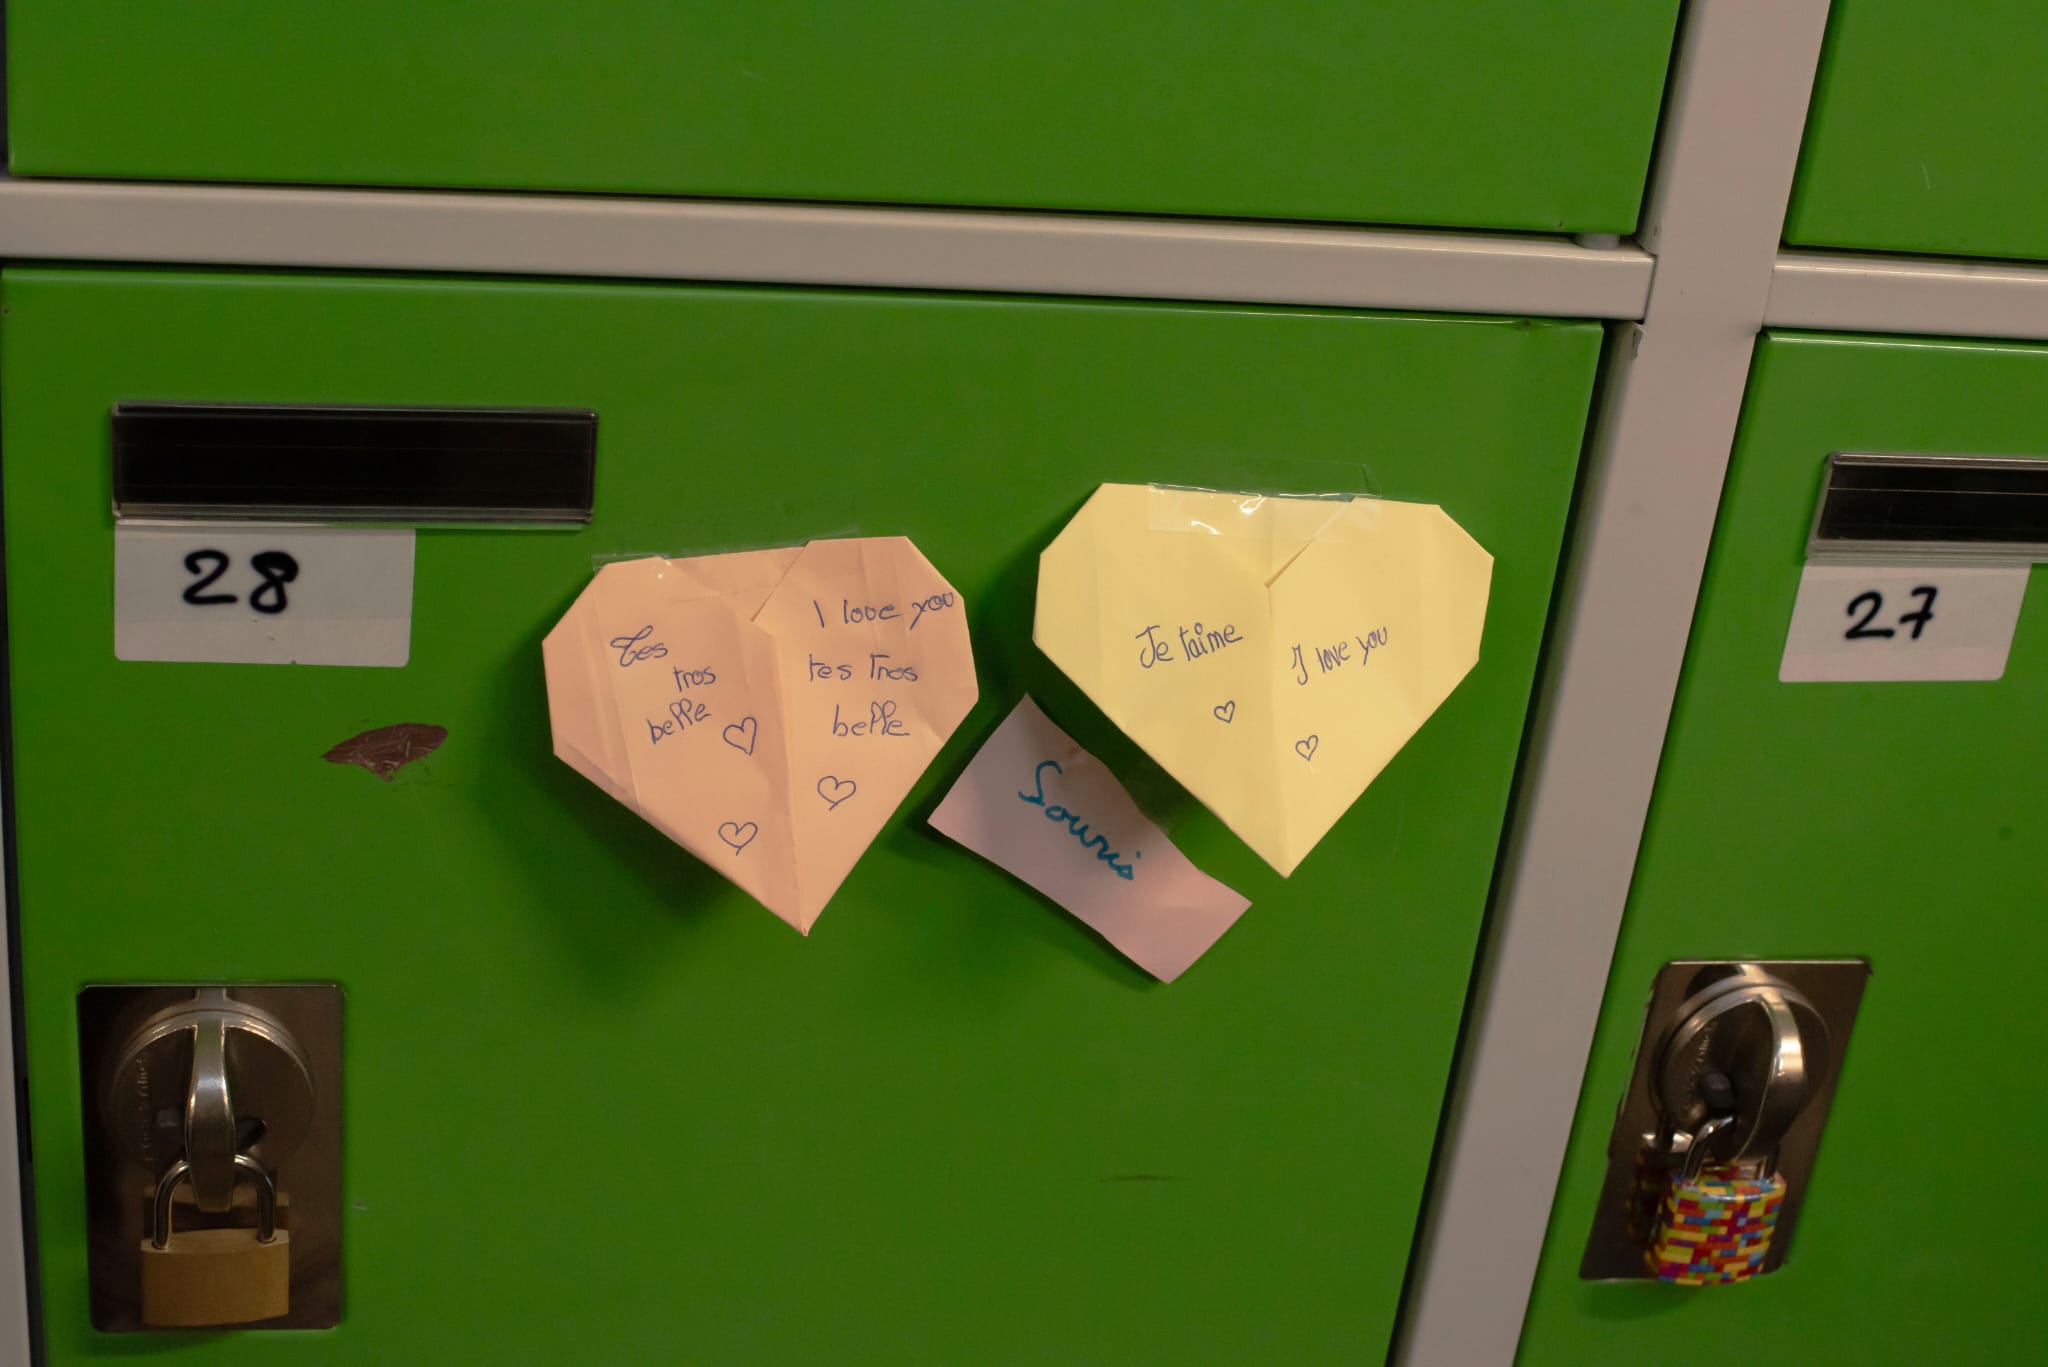 28
Tes
tros
belle
I love you
tes tros
belle
Je t'aime
I love you
Souris
27